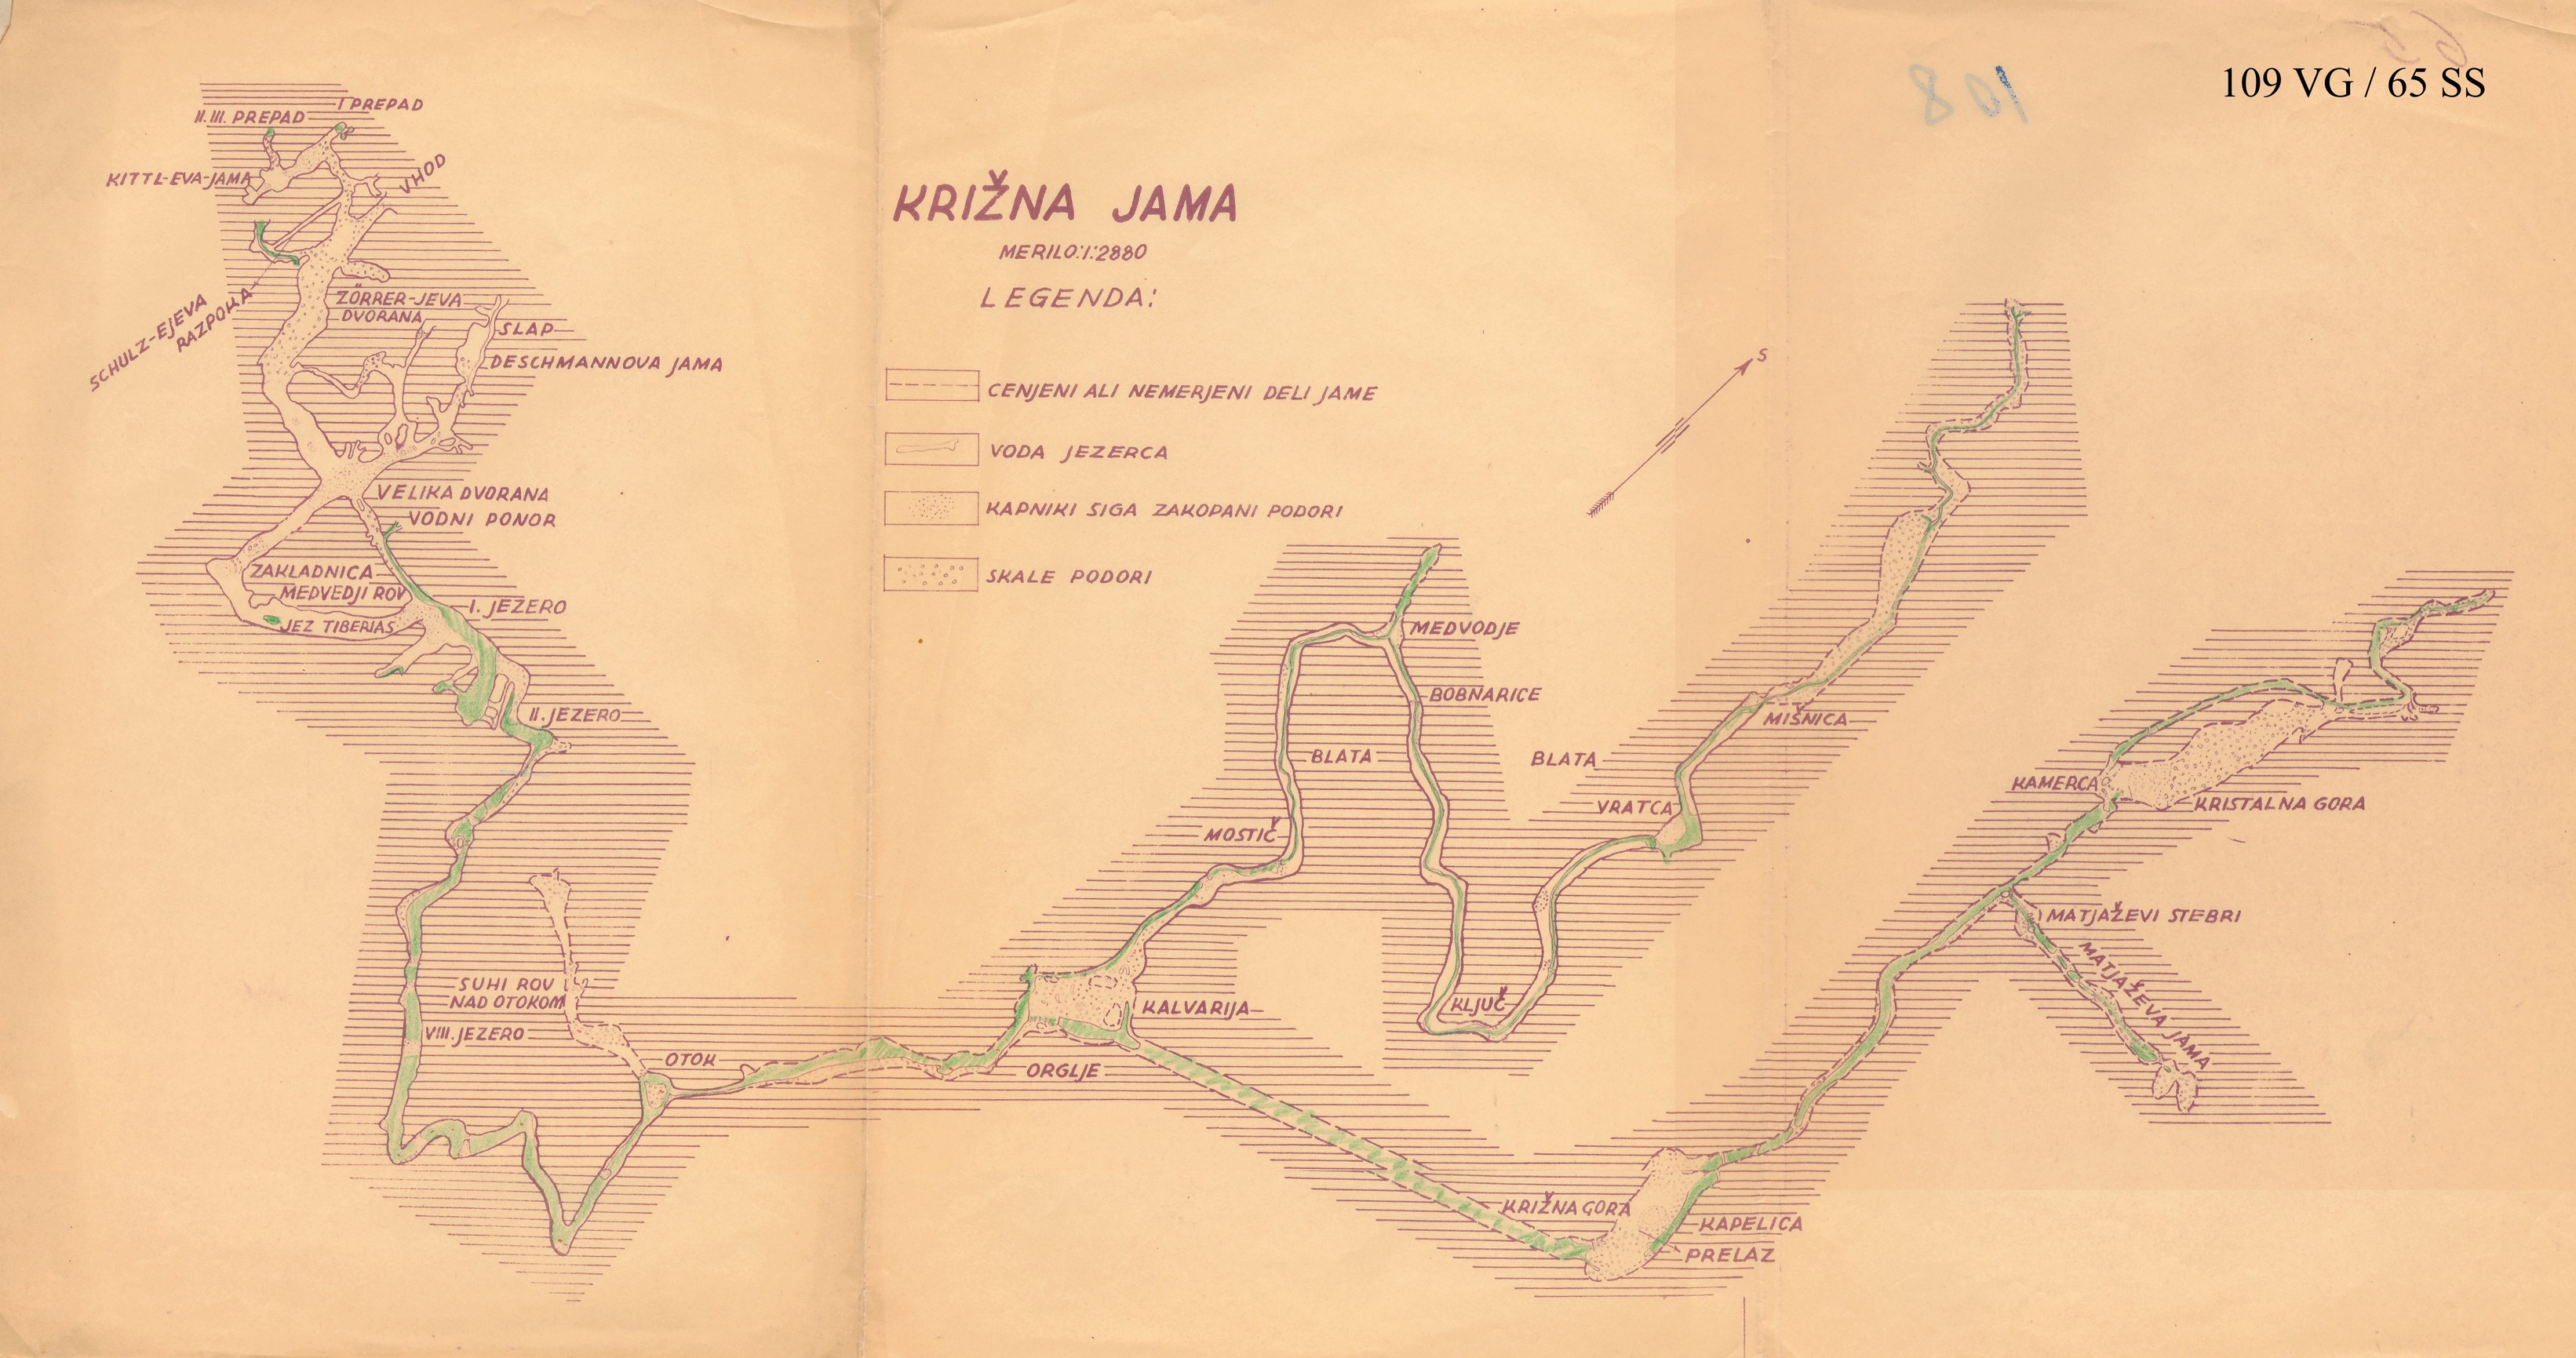 109 VG / 65 SS
65
108
KRIŽNA JAMA
MERILO:1:2880
LEGENDA:
CENJENI ALI NEMERJENI DELI JAME
VODA JEZERCA
KAPNIKI SIGA ZAKOPANI PODORI
SKALE PODORI
S
I PREPAD
II. III. PREPAD
KITTL-EVA-JAMA
VHOD
SCHULZ-EJEVA
RAZPOKA
ZÖRRER-JEVA
DVORANA
SLAP
DESCHMANNOVA JAMA
VELIKA DVORANA
VODNI PONOR
ZAKLADNICA
MEDVEDJI ROV
JEZ TIBERIAS
I. JEZERO
II. JEZERO
SUHI ROV
NAD OTOKOM
VIII. JEZERO
OTOK
ORGLJE
KALVARIJA
MOSTIČ
BLATA
MEDVODJE
BOBNARICE
KLJUČ
BLATA
VRATCA
MIŠNICA
KRIŽNA GORA
KAPELICA
PRELAZ
KAMERCA
KRISTALNA GORA
MATJAŽEVI STEBRI
MATJAŽEVA JAMA